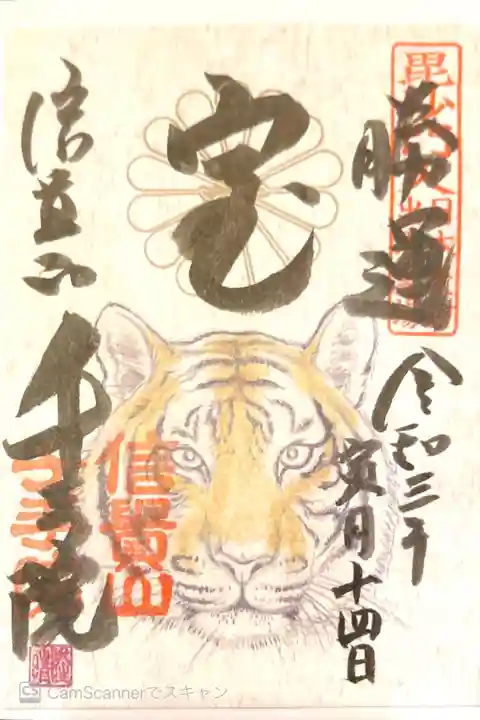 勝運
令和三年
寅月十四日
宝
信貴山
千手院
信貴山
CS CamScannerでスキャン